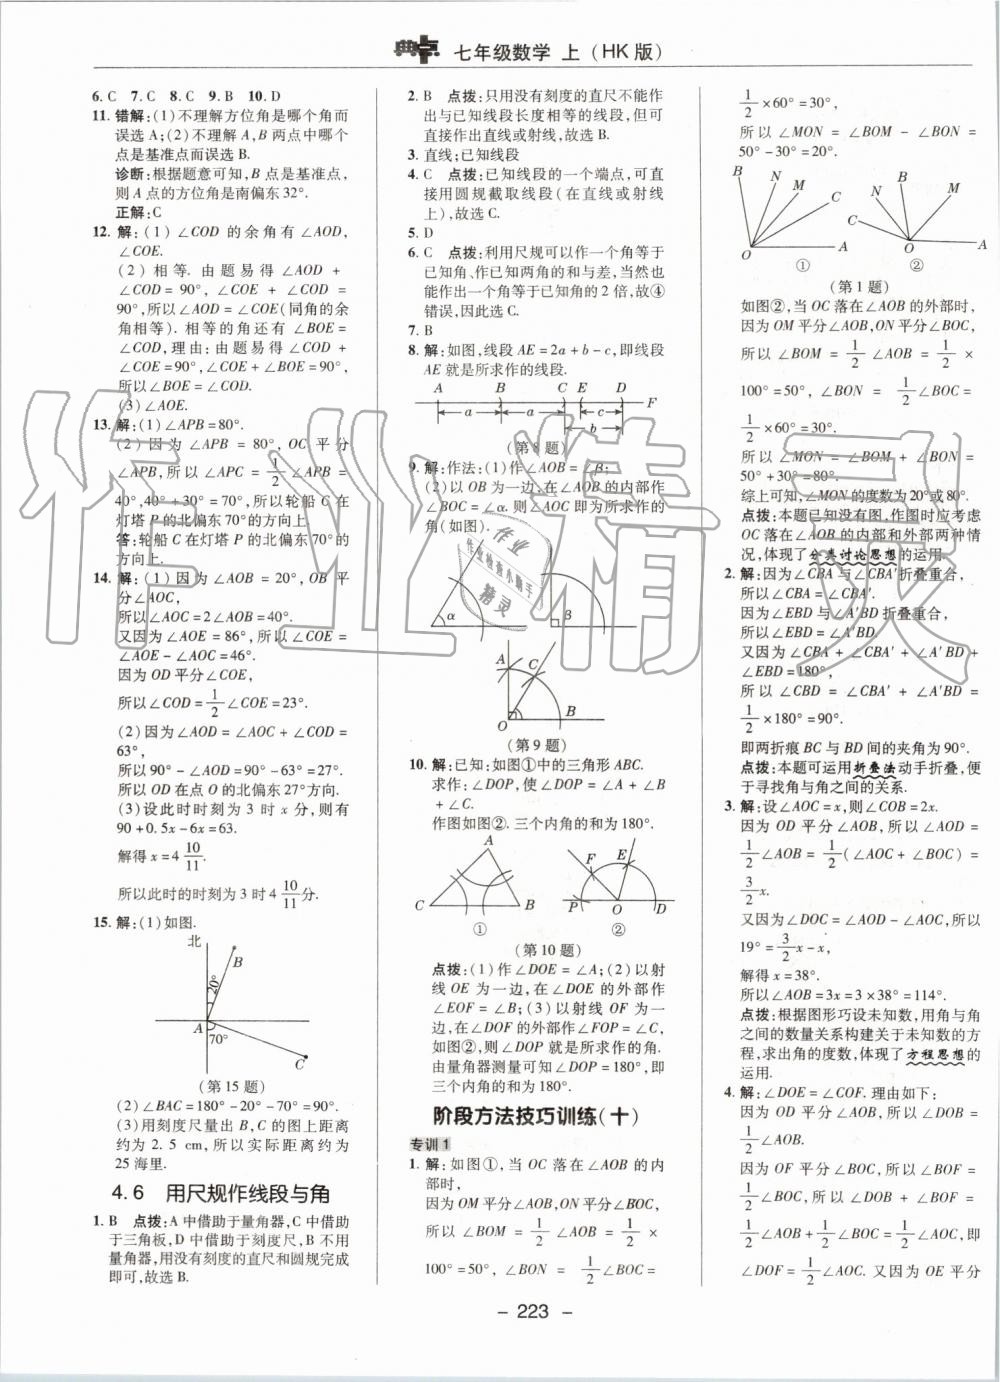 典点 七年级数学 上(HK版)
6. C 7. C 8. C 9. B 10. D
11. 错解:(1)不理解方位角是哪个角而
误选A;(2)不理解A,B两点中哪个
点是基准点而误选B.
诊断:根据题意可知,B点是基准点,
则A点的方位角是南偏东32°.
正解:C
12. 解:(1)∠COD的余角有∠AOD,
∠COE.
(2)相等.由题易得∠AOD+
∠COD=90°,∠COE+∠COD=
90°,所以∠AOD=∠COE(同角的余
角相等).相等的角还有∠BOE=
∠COD,理由:由题易得∠AOD+
∠COE=90°,∠COE+∠BOE=90°,
所以∠BOE=∠COD.
(3)∠AOE.
13. 解:(1)∠APB=80°.
(2)因为∠APB=80°,OC平分
∠APB,所以∠APC=1/2∠APB=
40°,40°+30°=70°,所以轮船C在
灯塔P的北偏东70°的方向上.
答:轮船C在灯塔P的北偏东70°的
方向上.
14. 解:(1)因为∠AOB=20°,OB平
分∠AOC,
所以∠AOC=2∠AOB=40°.
又因为∠AOE=86°,所以∠COE=
∠AOE-∠AOC=46°.
因为OD平分∠COE,
所以∠COD=1/2∠COE=23°.
(2)因为∠AOD=∠AOC+∠COD=
63°,
所以90°-∠AOD=90°-63°=27°.
所以OD在点O的北偏东27°方向.
(3)设此时时刻为3时x分,则有
90+0.5x-6x=63.
解得x=4 10/11.
所以此时的时刻为3时4 10/11分.
15. 解:(1)如图.
北
B
20°
A
70°
C
(第15题)
(2)∠BAC=180°-20°-70°=90°.
(3)用刻度尺量出B,C的图上距离
约为2.5 cm,所以实际距离约为
25海里.
4.6 用尺规作线段与角
1. B 点拨:A中借助于量角器,C中借助
于三角板,D中借助于刻度尺,B不用
量角器,用没有刻度的直尺和圆规完成
即可,故选B.
2. B 点拨:只用没有刻度的直尺不能作
出与已知线段长度相等的线段,但可
直接作出直线或射线,故选B.
3. 直线;已知线段
4. C 点拨:已知线段的一个端点,可直
接用圆规截取线段(在直线或射线
上),故选C.
5. D
6. C 点拨:利用尺规可以作一个角等于
已知角、作已知两角的和与差,当然也
能作出一个已知角的2倍,故④
错误,因此选C.
7. B
8. 解:如图,线段AE=2a+b-c,即线段
AE就是所求作的线段.
A B C E D F
a a c
b
(第8题)
9. 解:作法:(1)作∠AOB=∠β;
(2)以OB为一边,在∠AOB的内部作
∠BOC=∠α.则∠AOC即为所求作的
角(如图).
α β
A C
O B
(第9题)
10. 解:已知:如图①中的三角形ABC.
求作:∠DOP,使∠DOP=∠A+∠B
+∠C.
作图如图②.三个内角的和为180°.
A F E
C B P O D
① ②
(第10题)
点拨:(1)作∠DOE=∠A;(2)以射
线OE为一边,在∠DOE的外部作
∠EOF=∠B;(3)以射线OF为一
边,在∠DOF的外部作∠FOP=∠C,
如图②,则∠DOP就是所求作的角.
由量角器测量可知∠DOP=180°,即
三个内角的和为180°.
阶段方法技巧训练(十)
专训1
1. 解:如图①,当OC落在∠AOB的内
部时,
因为OM平分∠AOB,ON平分∠BOC,
所以∠BOM=1/2∠AOB=1/2×
100°=50°,∠BON=1/2∠BOC=
1/2×60°=30°,
所以∠MON=∠BOM-∠BON=
50°-30°=20°.
B N M C O A
①
C N B M O A
②
(第1题)
如图②,当OC落在∠AOB的外部时,
因为OM平分∠AOB,ON平分∠BOC,
所以∠BOM=1/2∠AOB=1/2×
100°=50°,∠BON=1/2∠BOC=
1/2×60°=30°.
所以∠MON=∠BOM+∠BON=
50°+30°=80°.
综上可知,∠MON的度数为20°或80°.
点拨:本题已知没有图,作图时应考虑
OC落在∠AOB的内部和外部两种情
况,体现了分类讨论思想的运用.
2. 解:因为∠CBA与∠CBA′折叠重合,
所以∠CBA=∠CBA′.
因为∠EBD与∠A′BD折叠重合,
所以∠EBD=∠A′BD.
又因为∠CBA+∠CBA′+∠A′BD+
∠EBD=180°,
所以∠CBD=∠CBA′+∠A′BD=
1/2×180°=90°.
即两折痕BC与BD间的夹角为90°.
点拨:本题可运用折叠法动手折叠,便
于寻找角与角之间的关系.
3. 解:设∠AOC=x,则∠COB=2x.
因为OD平分∠AOB,所以∠AOD=
1/2∠AOB=1/2(∠AOC+∠BOC)=
3/2x.
又因为∠DOC=∠AOD-∠AOC,所以
19°=3/2x-x,
解得x=38°.
所以∠AOB=3x=3×38°=114°.
点拨:根据图形巧设未知数,用角与角
之间的数量关系构建关于未知数的方
程,求出角的度数,体现了方程思想的
运用.
4. 解:∠DOE=∠COF.理由如下:
因为OD平分∠AOB,所以∠DOB=1/2
∠AOB.
因为OF平分∠BOC,所以∠BOF=1/2
∠BOC,所以∠DOB+∠BOF=
1/2∠AOB+1/2∠BOC=1/2∠AOC,即
∠DOF=1/2∠AOC.又因为OE平分
- 223 -
作业精灵
作业
作业检查小助手
精灵